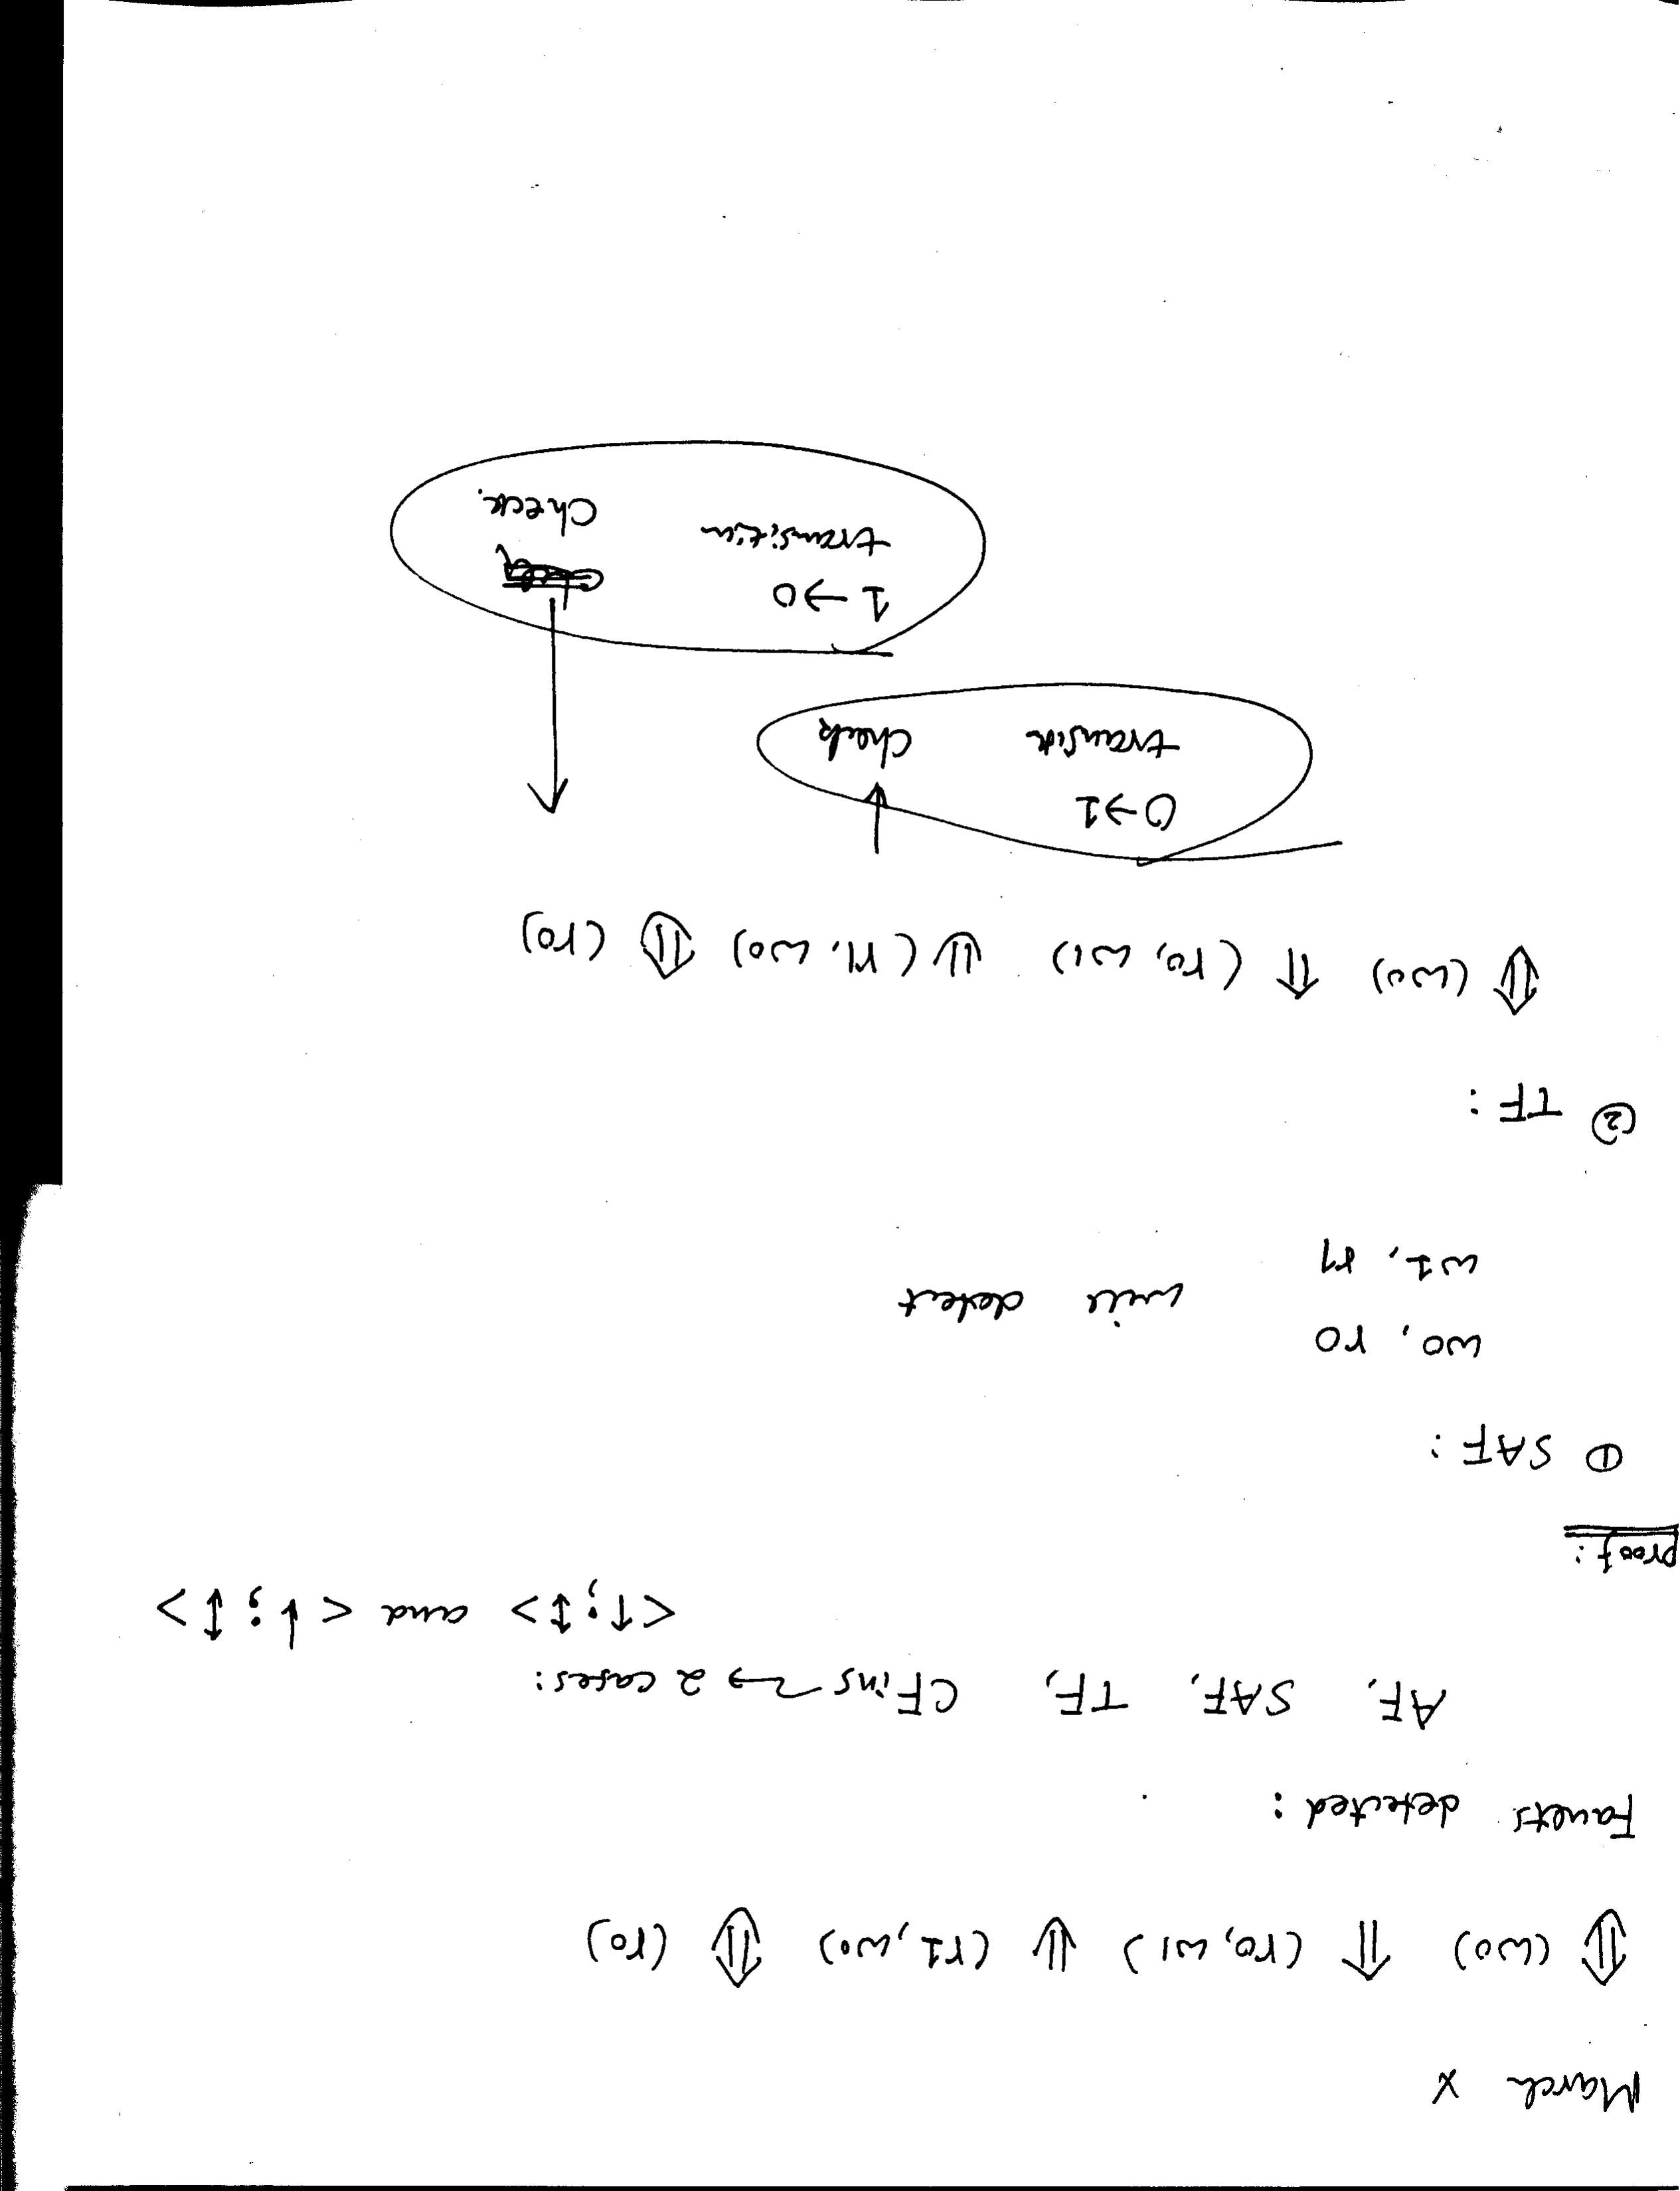 March X
⇕ (w0) ⇑ (r0, w1) ⇓ (r1, w0) ⇕ (r0)
Faults detected :
AF, SAF, TF, CFins → 2 cases:
<↑;↕> and <↓;↕>
proof:
① SAF :
w0, r0
will detect
w1, r1
② TF :
⇕ (w0) ⇑ (r0, w1) ⇓ (r1, w0) ⇕ (r0)
0→1
transin check
1→0
transition check.